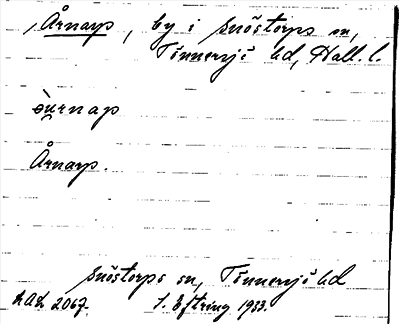 Årnarp, by i Snöstorps sn,
Tönnersjö hd, Hall. l.
Årnarp.
Snöstorps sn, Tönnersjö hd
LAL 2067. 1. Eftring 1933.